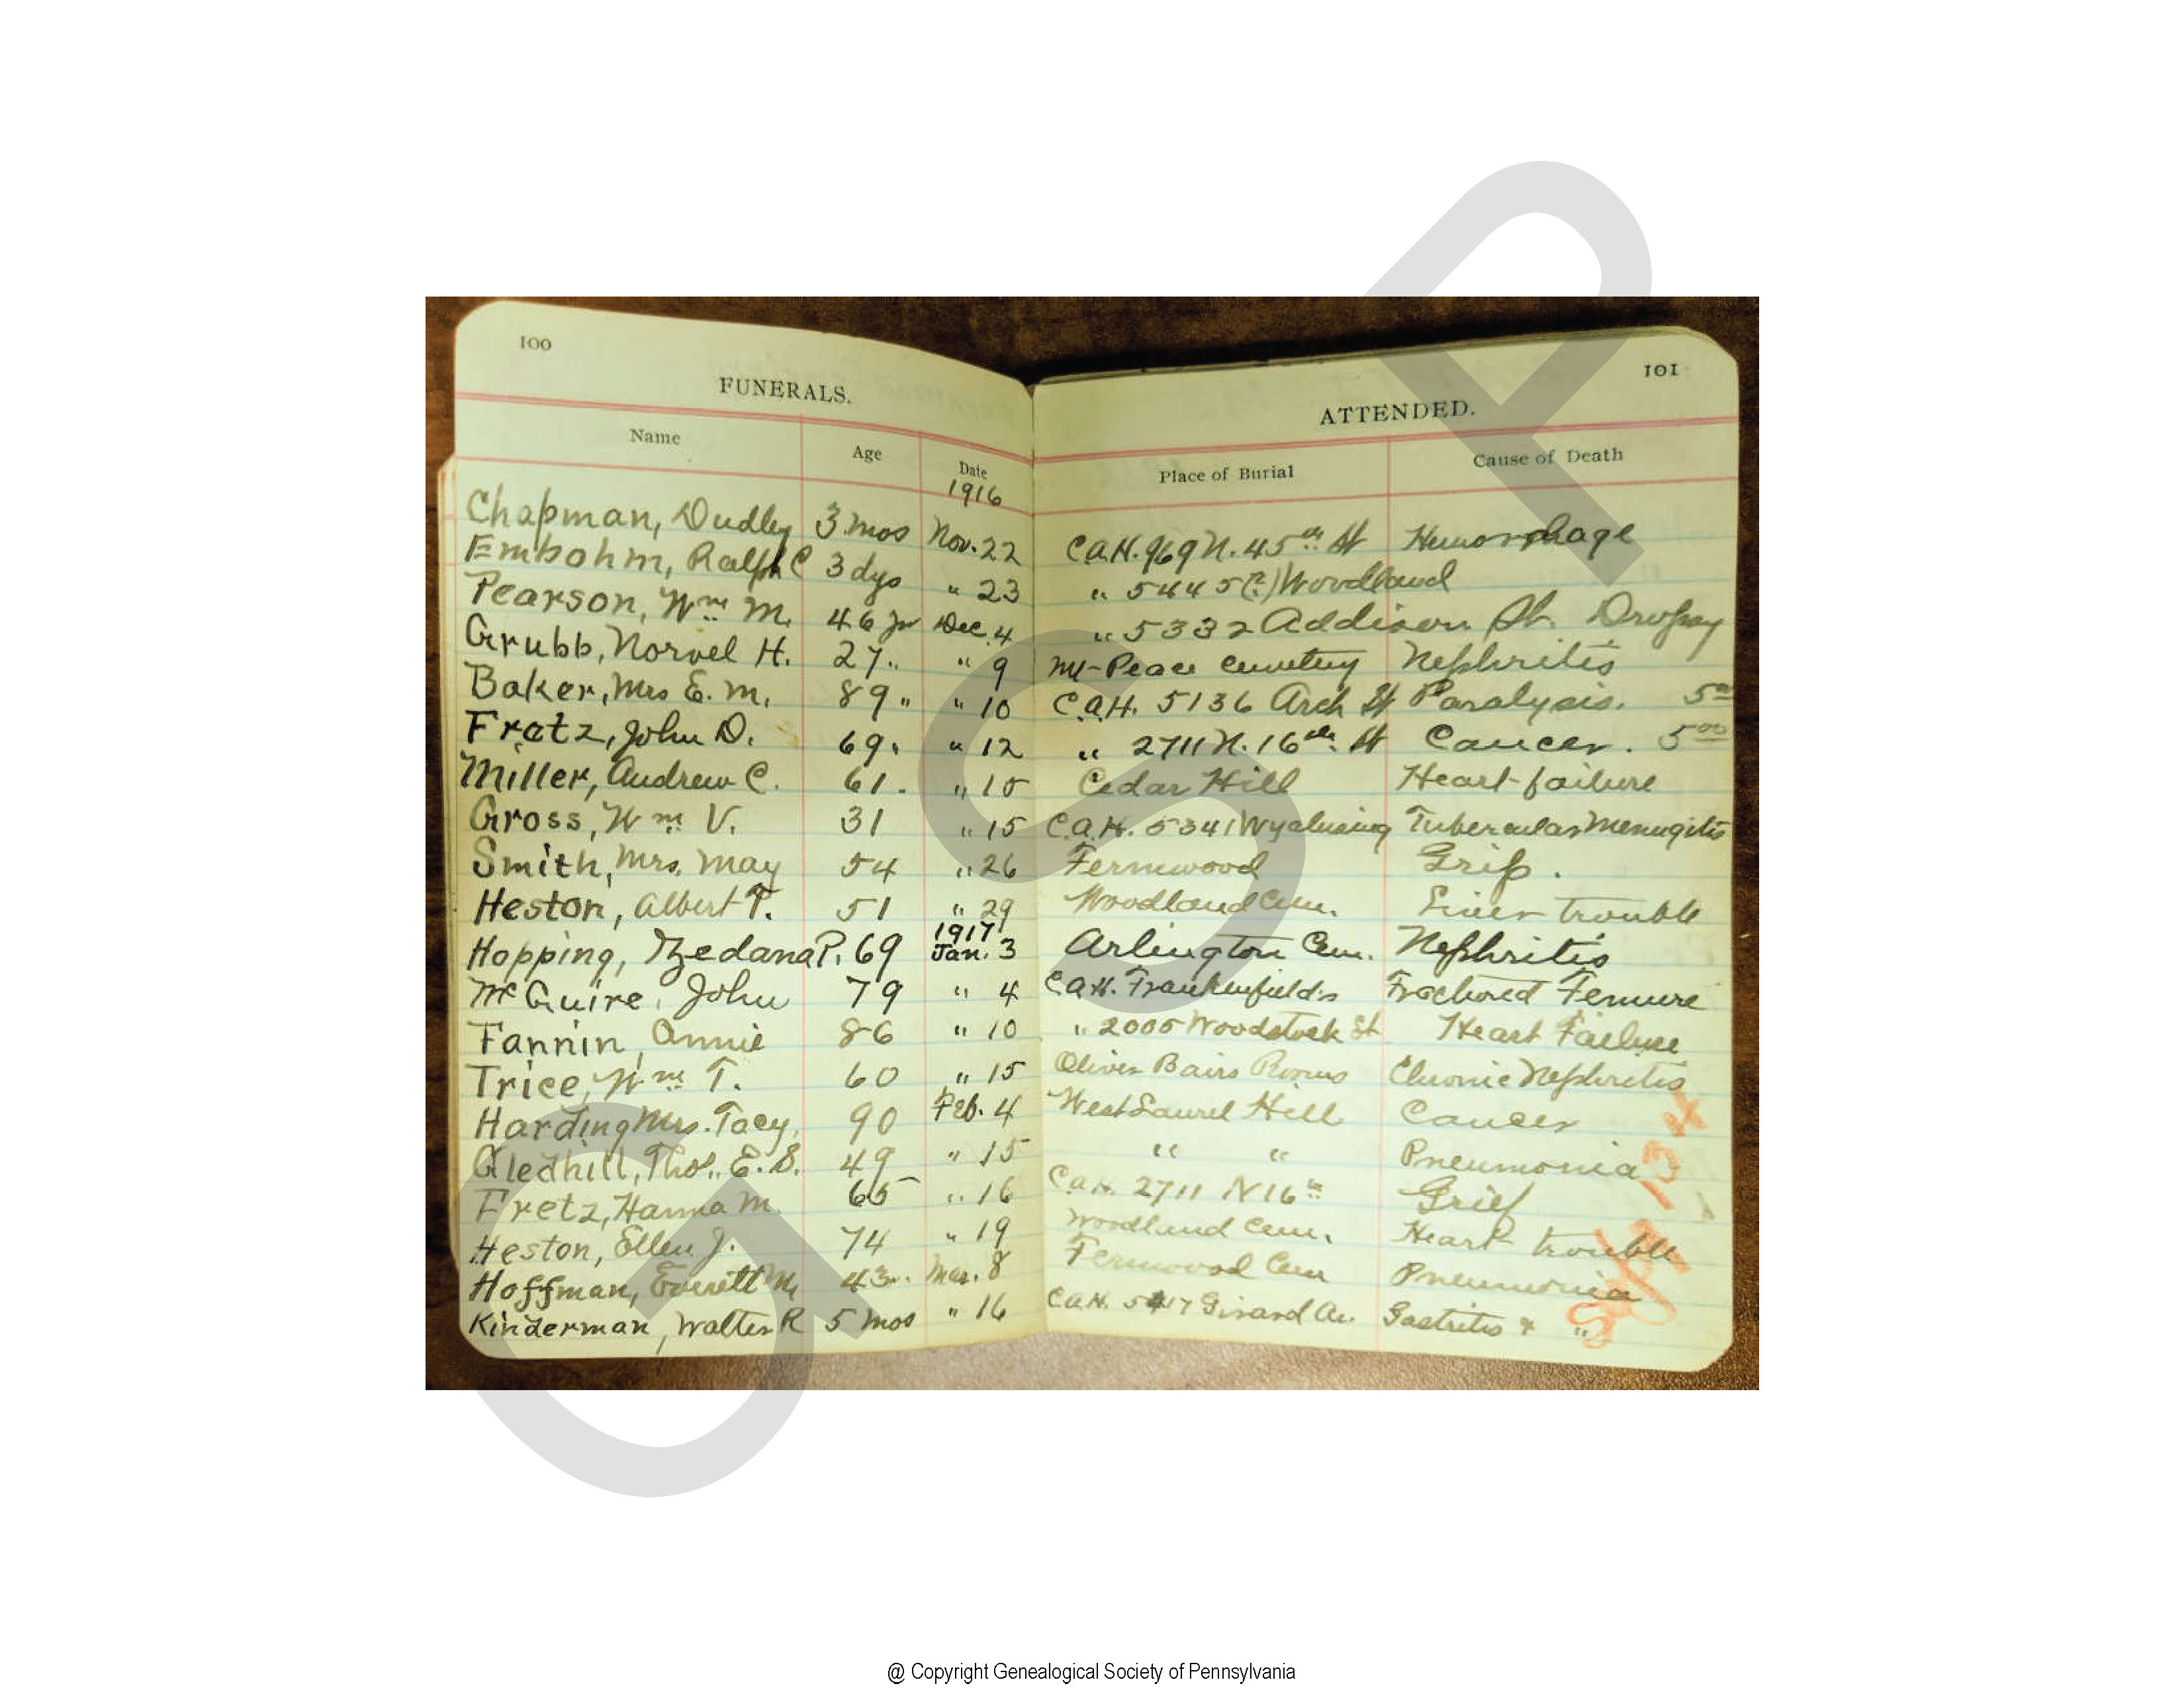 100
101
FUNERALS. ATTENDED.
Name Age Date Place of Burial Cause of Death
1916
Chapman, Dudley 3 mos Nov. 22 C.A.H. 969 N. 45th St Hemorrhage
Embohm, Ralph C 3 dys " 23 " 5445(?) Woodland
Pearson, Wm M. 46 yr Dec. 4 " 5332 Addison St. Dropsy
Grubb, Norvel H. 27 " " 9 Mt-Peace Cemetery Nephritis
Baker, Mrs E. M. 89 " " 10 C.A.H. 5136 Arch St Paralysis. 5 00
Fratz, John D. 69 " " 12 " 2711 N. 16th St Cancer. 5 00
Miller, Andrew C. 61 . " 15 Cedar Hill Heart failure
Gross, Wm V. 31 " 15 C.A.H. 5341 Wyalusing Tubercular Menugitis
Smith, Mrs. May 54 " 26 Fernwood Grip.
Heston, Albert T. 51 " 29 Woodland Cem. Liver trouble
1917
Hopping, P. 69 Jan. 3 Arlington Cem. Nephritis
McGuire, John 79 " 4 C.A.H. Frankenfields Fractured Femure
Fannin, Annie 86 " 10 " 2005 Woodstock St Heart Failure
Trice, Wm T. 60 " 15 Oliver Bairs Rooms Chronic Nephritis
Harding Mrs. Tacy. 90 Feb. 4 West Laurel Hill Cancer
Gledhill, Thos. E. S. 49 " 15 " " Pneumonia
Fretz, Hanna M. 65 " 16 C.A.H. 2711 N 16th Grief
Heston, Ellen J. 74 " 19 Woodland Cem. Heart trouble
Hoffman, Everett M. 43 " Mar. 8 Fernwood Cem Pneumonia
Kinderman, Walter R 5 mos " 16 C.A.H. 5417 Girard Av. Gastritis & "
134
GSP
@ Copyright Genealogical Society of Pennsylvania